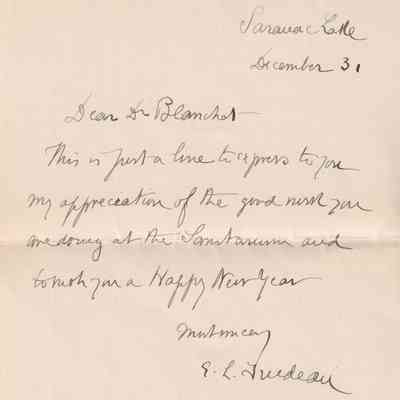 Saranac Lake
December 31
Dear Dr Blanchet
This is just a line to express to you
my appreciation of the good work you
are doing at the Sanitarium and
to wish you a Happy New Year
E. L. Trudeau